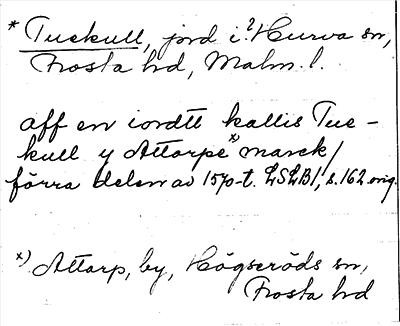 * Tuekull, jord i ? Hurva sn,
Frosta hd, Malm. l.
aff en iordtt kallis Tue-
kull y Attarpe x) marck/
förra delen av 1570-t. LSLB1, s. 162 orig.
x) Attarp, by, Högseröds sn,
Frosta hd